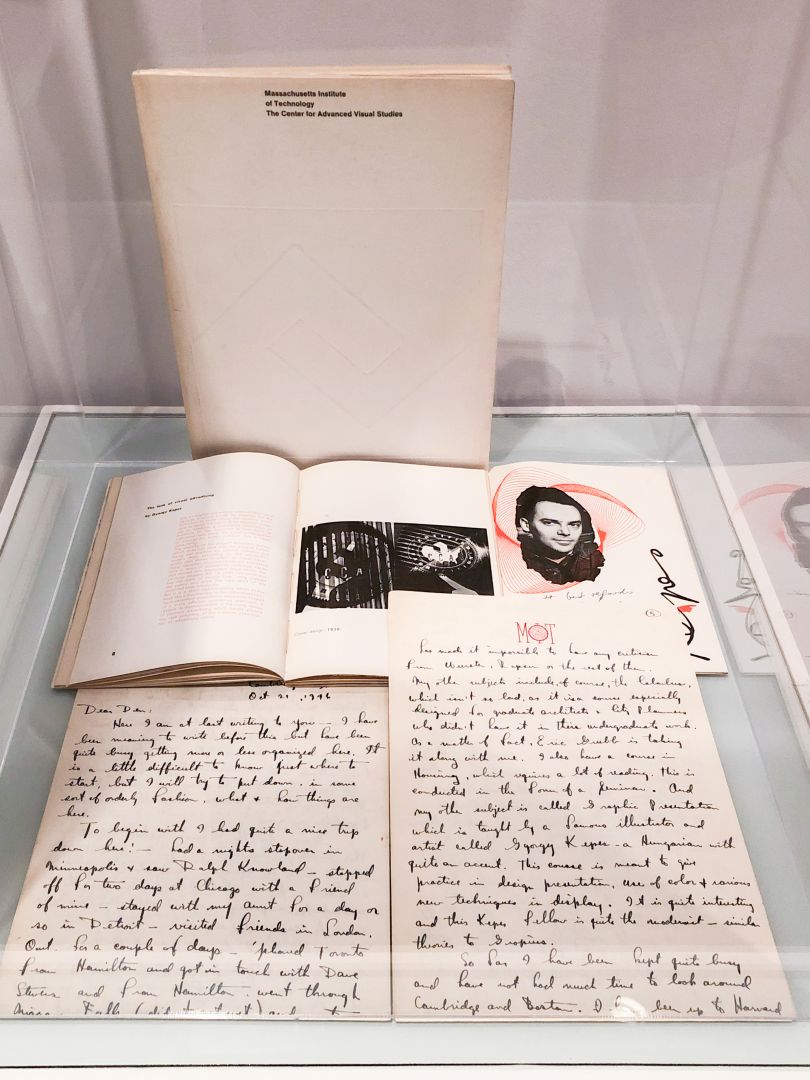 Massachusetts Institute
of Technology
The Center for Advanced Visual Studies
The task of visual advertising
by Gyorgy Kepes
8
CCA
Cover design, 1938
kepes
Oct 21, 1946
Dear Den:
Here I am at last writing to you — I have
been meaning to write before this but have been
quite busy getting more or less organized here. It
is a little difficult to know just where to
start, but I will try to put down, in some
sort of orderly fashion, what & how things are
here.
To begin with I had quite a nice trip
down here! — had a nights stopover in
Minneapolis & saw Ralph Knowland — stopped
off for two days at Chicago with a friend
of mine — stayed with my aunt for a day or
so in Detroit — visited friends in London,
Ont. for a couple of days — 'phoned Toronto
from Hamilton and got in touch with Dave
and from Hamilton went through
5
MOT
has made it impossible to have any criticism
from Wurster, or the rest of them.
My other subjects include, of course, the Calculus,
which isn't so bad, as it is a course especially
designed for graduate architects & City Planners
who didn't have it in there undergraduate work.
As a matter of fact, Eric is taking
it along with me. I also have a course in
Housing, which requires a lot of reading, this is
conducted in the form of a Seminar. And
my other subject is called Graphic Presentation
which is taught by a famous illustrator and
artist called Gyorgy Kepes — a Hungarian with
quite an accent. This course is meant to give
practice in design presentation, use of color & various
new techniques in display. It is quite interesting
and this Kepes fellow is quite the modernist — similar
theories to Gropius.
So far I have been kept quite busy
and have not had much time to look around
Cambridge and Boston. I have been up to Harvard